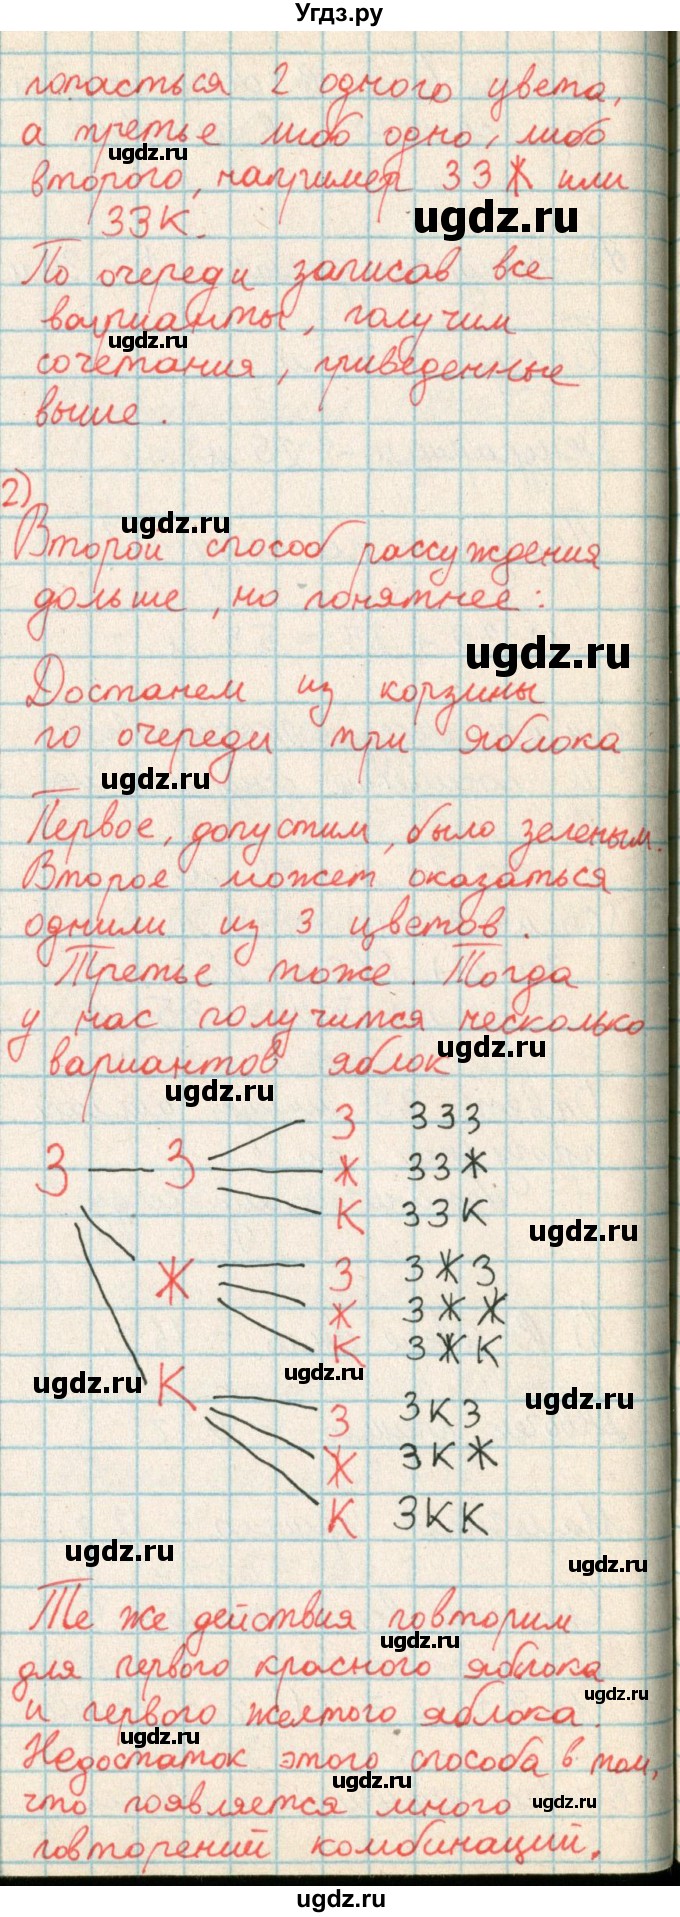 Угдз.ру
попасться 2 одного цвета,
а третье либо одно, либо
ugdz.ru
второго, например ЗЗЖ или
ugdz.ru
ЗЗК.
По очереди записав все
варианты, получим
ugdz.ru
сочетания, приведенные
выше.
2)
ugdz.ru
Второй способ рассуждения
дольше, но понятнее:
ugdz.ru
Достанем из корзины
по очереди три яблока
ugdz.ru
Первое, допустим, было зеленым.
Второе может оказаться
однили из 3 цветов.
Третье тоже. Тогда
у нас получится несколько
ugdz.ru
вариантов яблок
ugdz.ru
З З З ЗЗЗ
Ж ЗЗЖ
К ЗЗК
ugdz.ru
Ж З ЗЖЗ
Ж ЗЖЖ
К ЗЖК
ugdz.ru
ugdz.ru
ugdz.ru
К З ЗКЗ
Ж ЗКЖ
К ЗКК
ugdz.ru
ugdz.ru
Те же действия повторим
ugdz.ru
для первого красного яблока
ugdz.ru
и первого желтого яблока.
ugdz.ru
Недостаток этого способа в том,
ugdz.ru
что появляется много
ugdz.ru
повторений комбинаций.
ugdz.ru